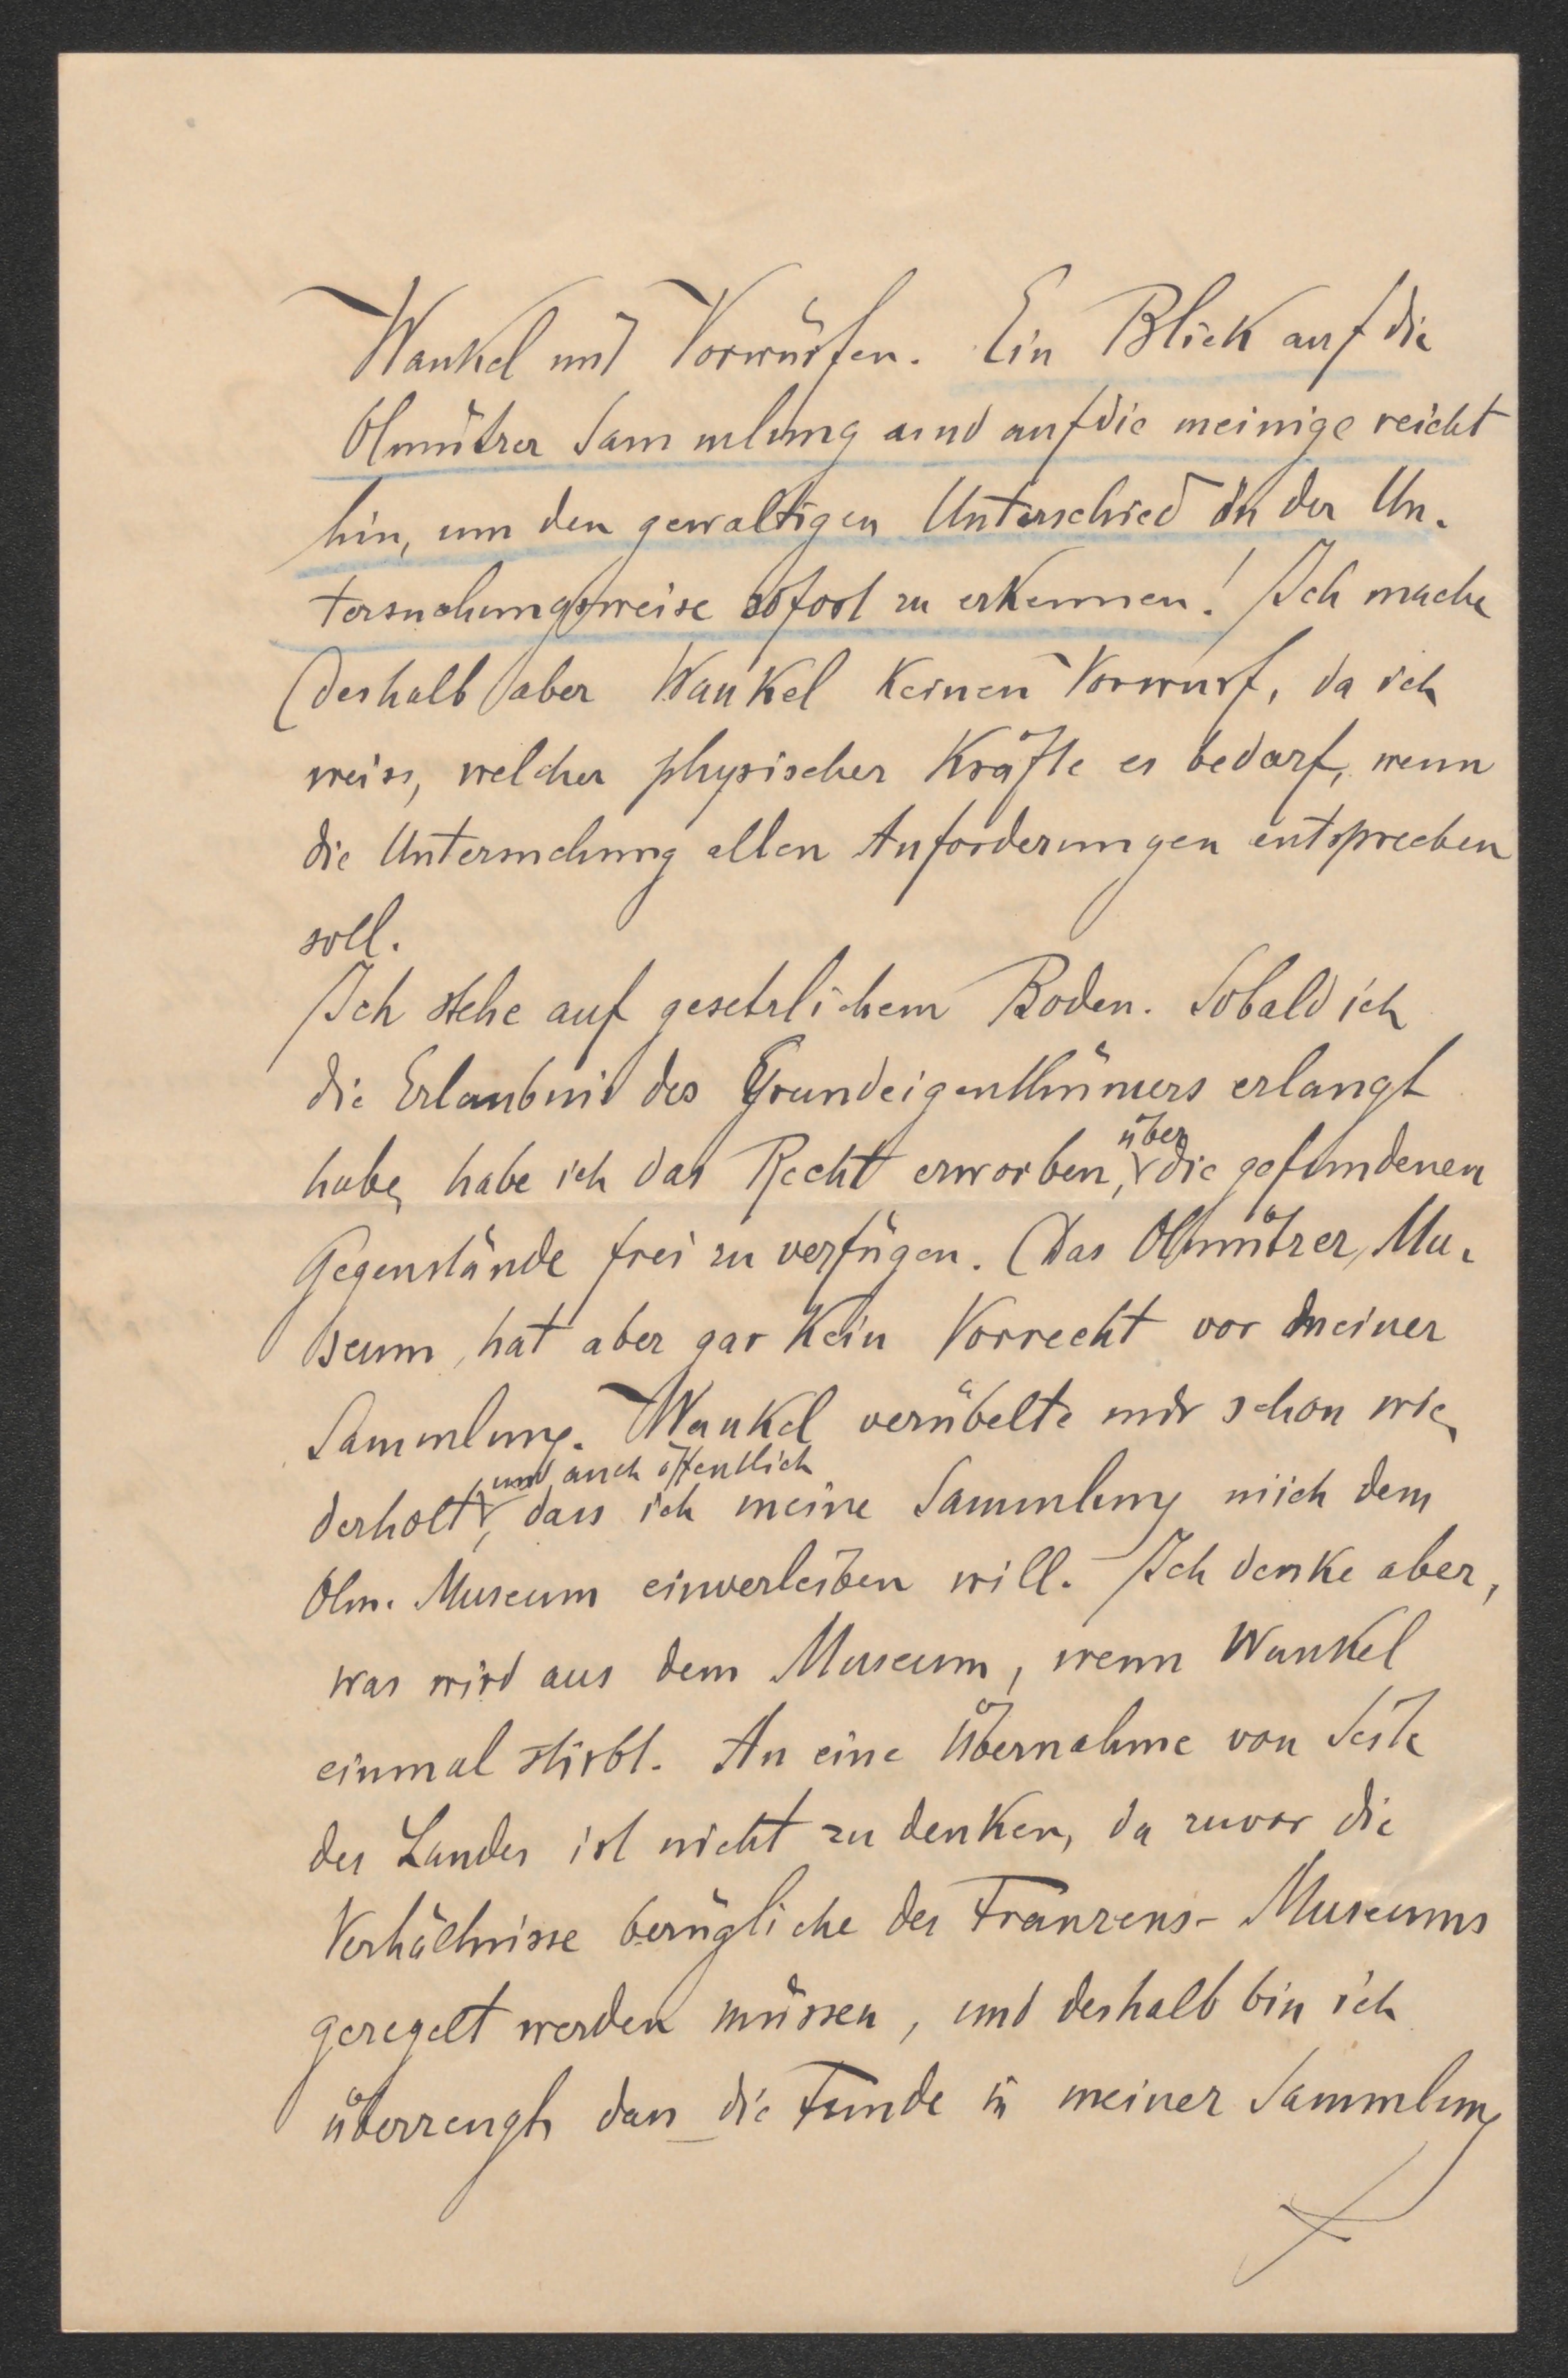 Wankel mit Vorwürfen. Ein Blick auf die
Olmützer Sammlung und auf die meinige reicht
hin, um den gewaltigen Unterschied in der Un-
tersuchungsweise sofort zu erkennen! Ich mache
deshalb aber Wankel keinen Vorwurf, da ich
weiss, welcher physischer Kräfte es bedarf, wenn
die Untersuchung allen Anforderungen entsprechen
soll.
Ich stehe auf gesetzlichem Boden. Sobald ich
die Erlaubnis des Grundeigenthümers erlangt
habe, habe ich das Recht erworben, über die gefundenen
Gegenstände frei zu verfügen. Das Olmützer Mu-
seum hat aber gar kein Vorrecht vor meiner
Sammlung. Wankel verübelte mir schon wie-
derholt und auch öffentlich, dass ich meine Sammlung nich dem
Olm. Museum einverleiben will. Ich denke aber,
was wird aus dem Museum, wenn Wankel
einmal stirbt. An eine Übernahme von Seite
des Landes ist nicht zu denken, da zuvor die
Verhältnisse bezügliche des Franzens-Museums
geregelt werden müssen, und deshalb bin ich
überzeugt, dass die Funde in meiner Sammlung